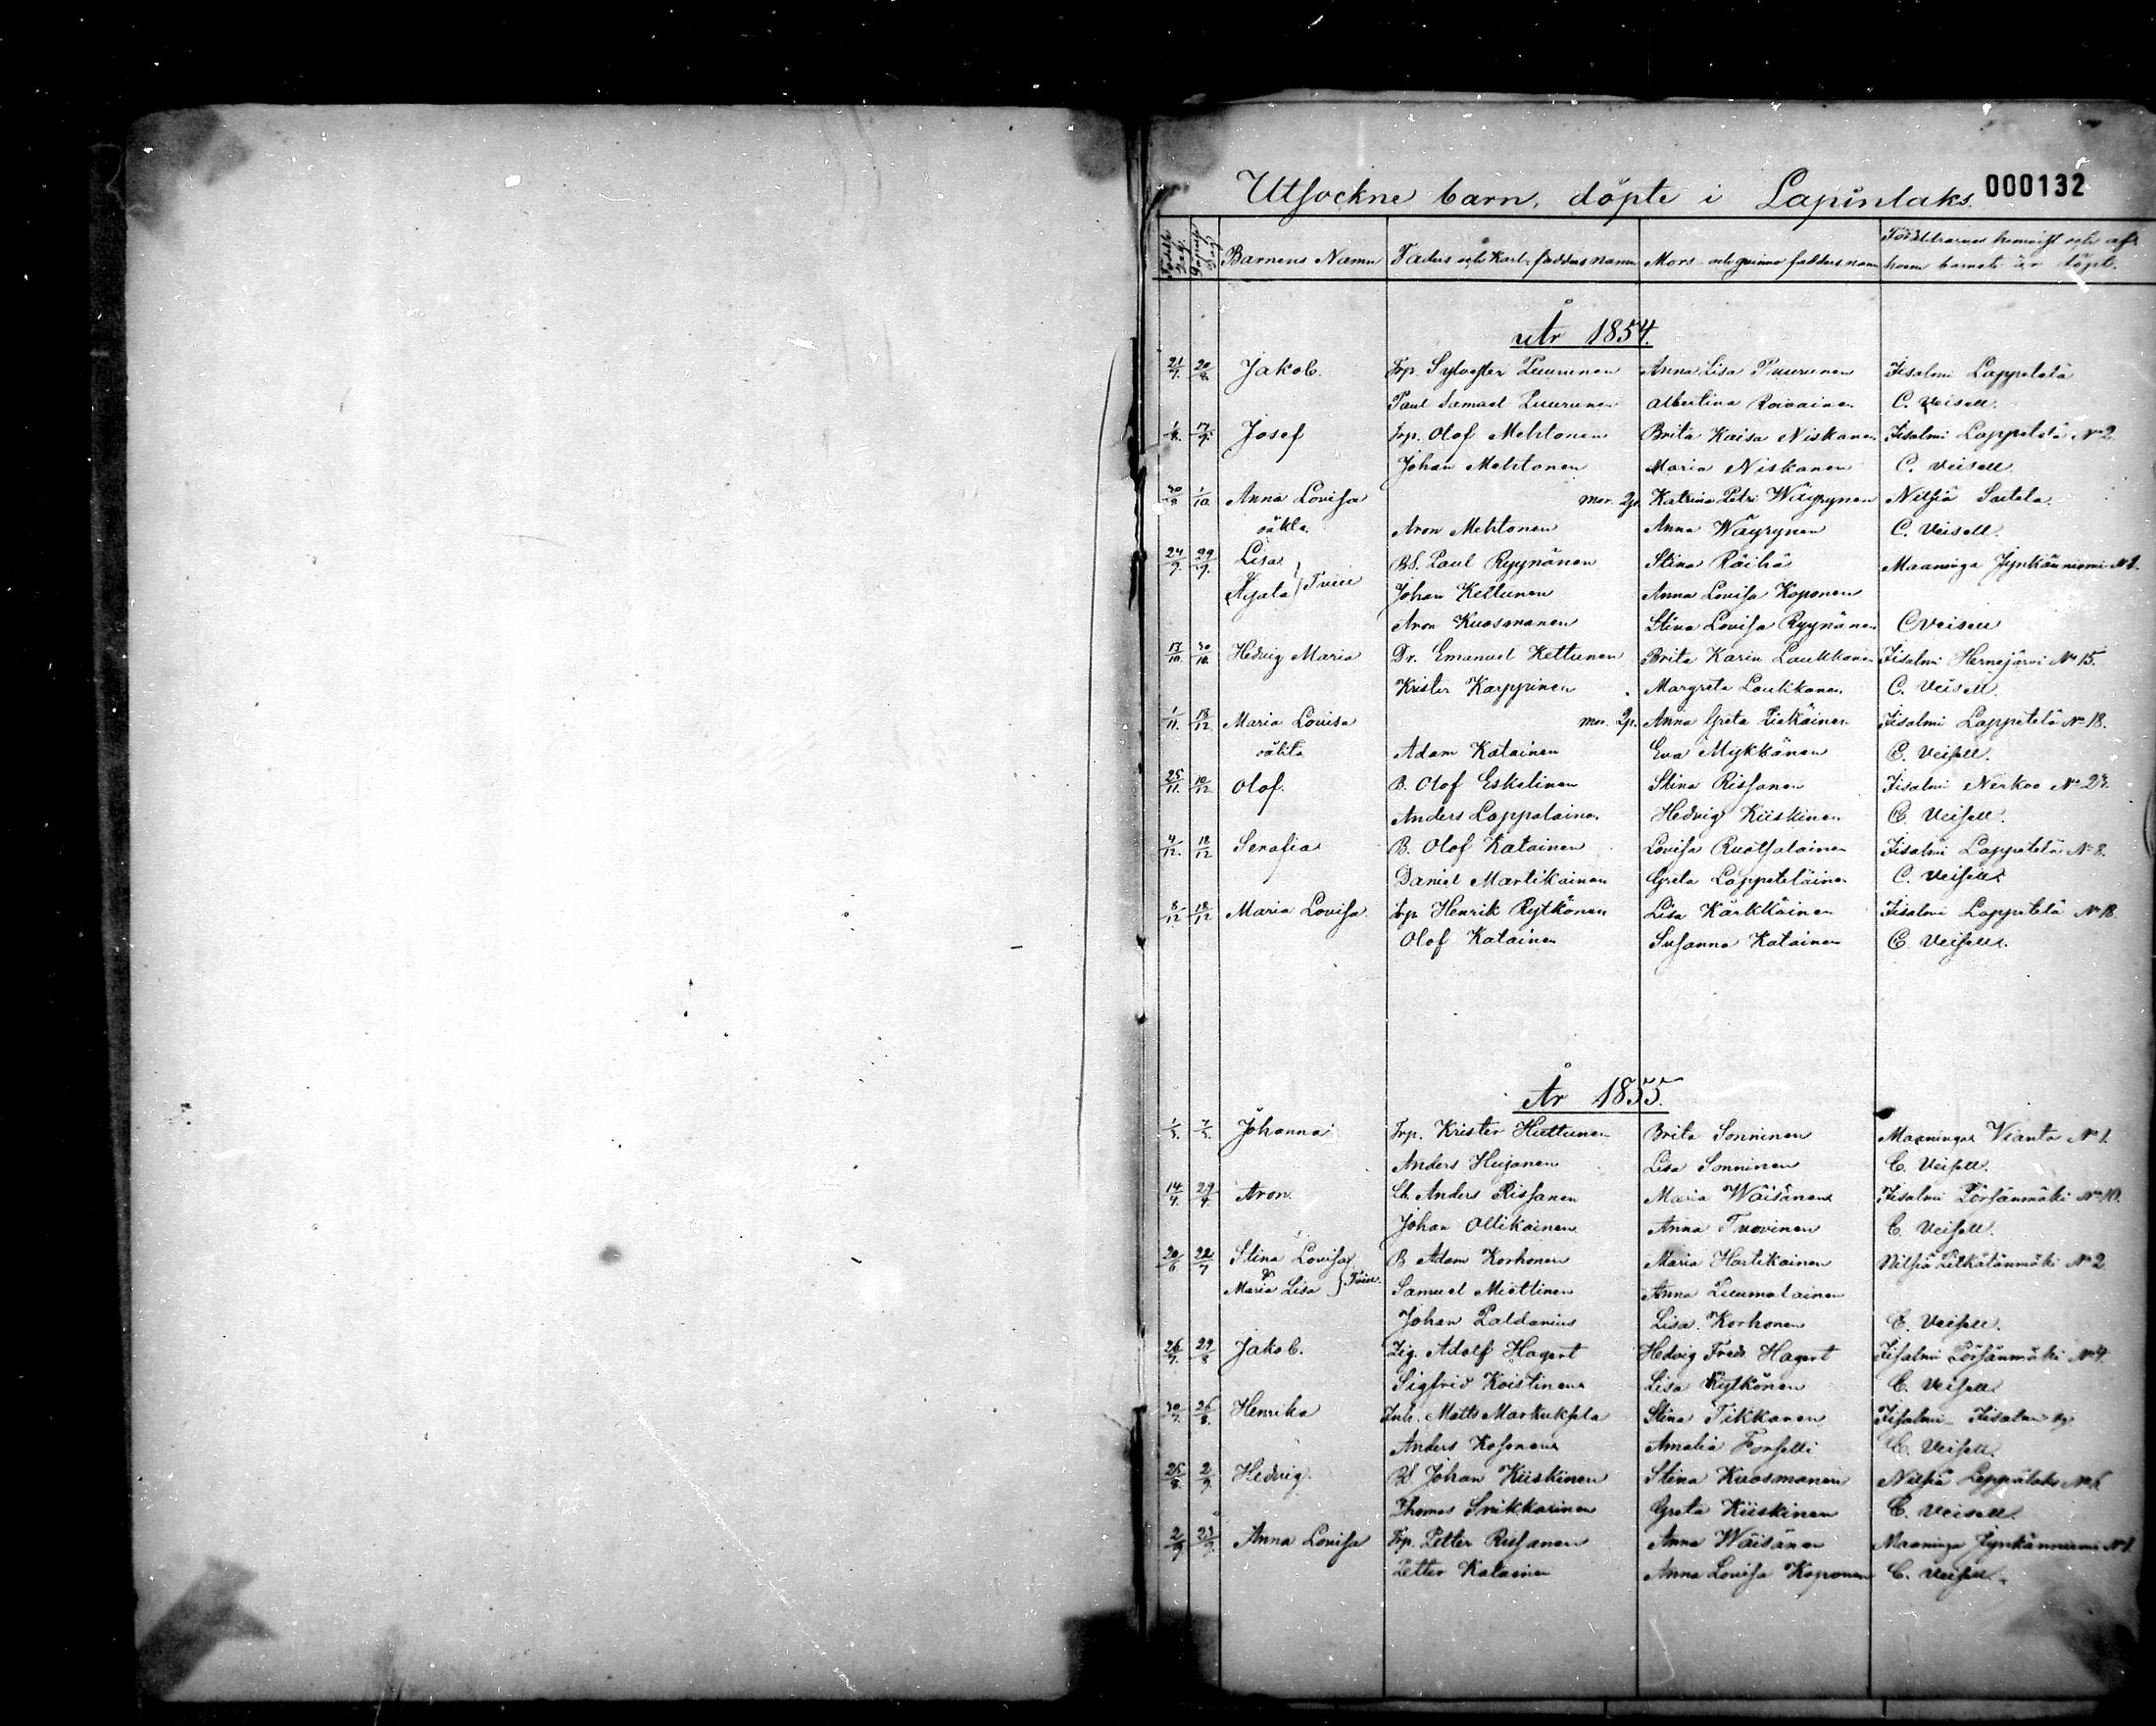 Utsockne barn, döpte i Lapinlaks. 000132
Födelse Dag. Döpelse Dag Barnens Namn Faders och Karl-faddersnamn Mors- och qvinno faddersnamn Föräldrarnes hemvist och af
hvem barnet är döpt.
År 1854.
21/7. 20/8. Jakob. Trp. Sylvester Puurunen Anna Lisa Puurunen Iisalmi Lappetelä
Paul Samuel Puurunen Albertina Roivainen C. Veisell.
1/8. 17/9. Josef Trp. Olof Mehtonen Brita Kaisa Niskanen Iisalmi Lappetelä No 2.
Johan Mehtonen Maria Niskanen C. Veisell.
30/9 1/10. Anna Lovisa mor. 2p. Katrina Petri Wäyrynen Nilsiä
oäkta. Aron Mehtonen Anna Wäyrynen C. Veisell.
24/9. 29/9. Lisa BS. Paul Ryynänen Stina Räihä Maaninga Jynkänniemi No 1.
Agata } Tvill Johan Kettunen Anna Lovisa Koponen
Aron Kuosmanen Stina Lovisa Ryynänen C Veisell
17/10. 30/10. Hedvig Maria Dr. Emanuel Kettunen Brita Karin Laukkanen Iisalmi Hernejärvi No 15.
Krister Karppinen Margreta Laukkanen C. Veisell.
1/11. 18/12 Maria Lovisa mor. 2p. Anna Greta Iisalmi Lappetelä No 18.
oäkta Adam Katainen Eva Mykkänen C. Veisell.
25/11. 10/12 Olof. B. Olof Eskelinen Stina Rissanen Iisalmi Nerkoo No 27.
Anders Lappalainen Hedvig Kiiskinen C. Veisell.
4/12. 18/12 Serafia B. Olof Katainen Lovisa Ruotsalainen Iisalmi Lappetelä No 8.
Daniel Martikainen Greta Lappeteläinen C. Veisell.
8/12 18/12 Maria Lovisa Trp Henrik Rytkönen Lisa Kärkkäinen Iisalmi Lappetelä No 18.
Olof Katainen Susanna Katainen C. Veisell.
År 1855.
1/5. 7/5. Johanna Trp. Krister Huttunen Brita Sonninen Maaninga Vianta No 1.
Anders Heijanen Lisa Sonninen C. Veisell.
14/4. 29/4. Aron. Lb. Anders Rissanen Maria Wäisänen Iisalmi Pörsänmäki No 10.
Johan Ollikainen Anna Tuovinen C. Veisell.
20/6 22/7 Stina Lovisa B Adam Korhonen Maria Hartikainen Nilsiä Pelkälänmäki No 2
& Maria Lisa } Tvill. Samuel Miettinen Anna Puumalainen
Johan Paldanius Lisa Korhonen C. Veisell.
26/7. 29/8 Jakob. Zig. Adolf Hagert Hedvig Fredr. Hagert Iisalmi Pörsänmäki No 4.
Sigfrid Koistinen Lisa Rytkönen C. Veisell.
30/7. 26/8. Henrika Inh. Matts Markuksela Stina Tikkanen Iisalmi Iisalmi by
Anders Kosonen Amalia Forsell C. Veisell.
25/8. 2/9. Hedvig. BS Johan Kiiskinen Stina Kuosmanen Nilsiä Leppälaks No 6
Thomas Snikkarinen Greta Kiiskinen C. Veisell.
2/9 23/9. Anna Lovisa Trp. Petter Rissanen Anna Wäisänen Maaninga Jynkänniemi No 1.
Petter Katainen Anna Lovisa Koponen C. Veisell.